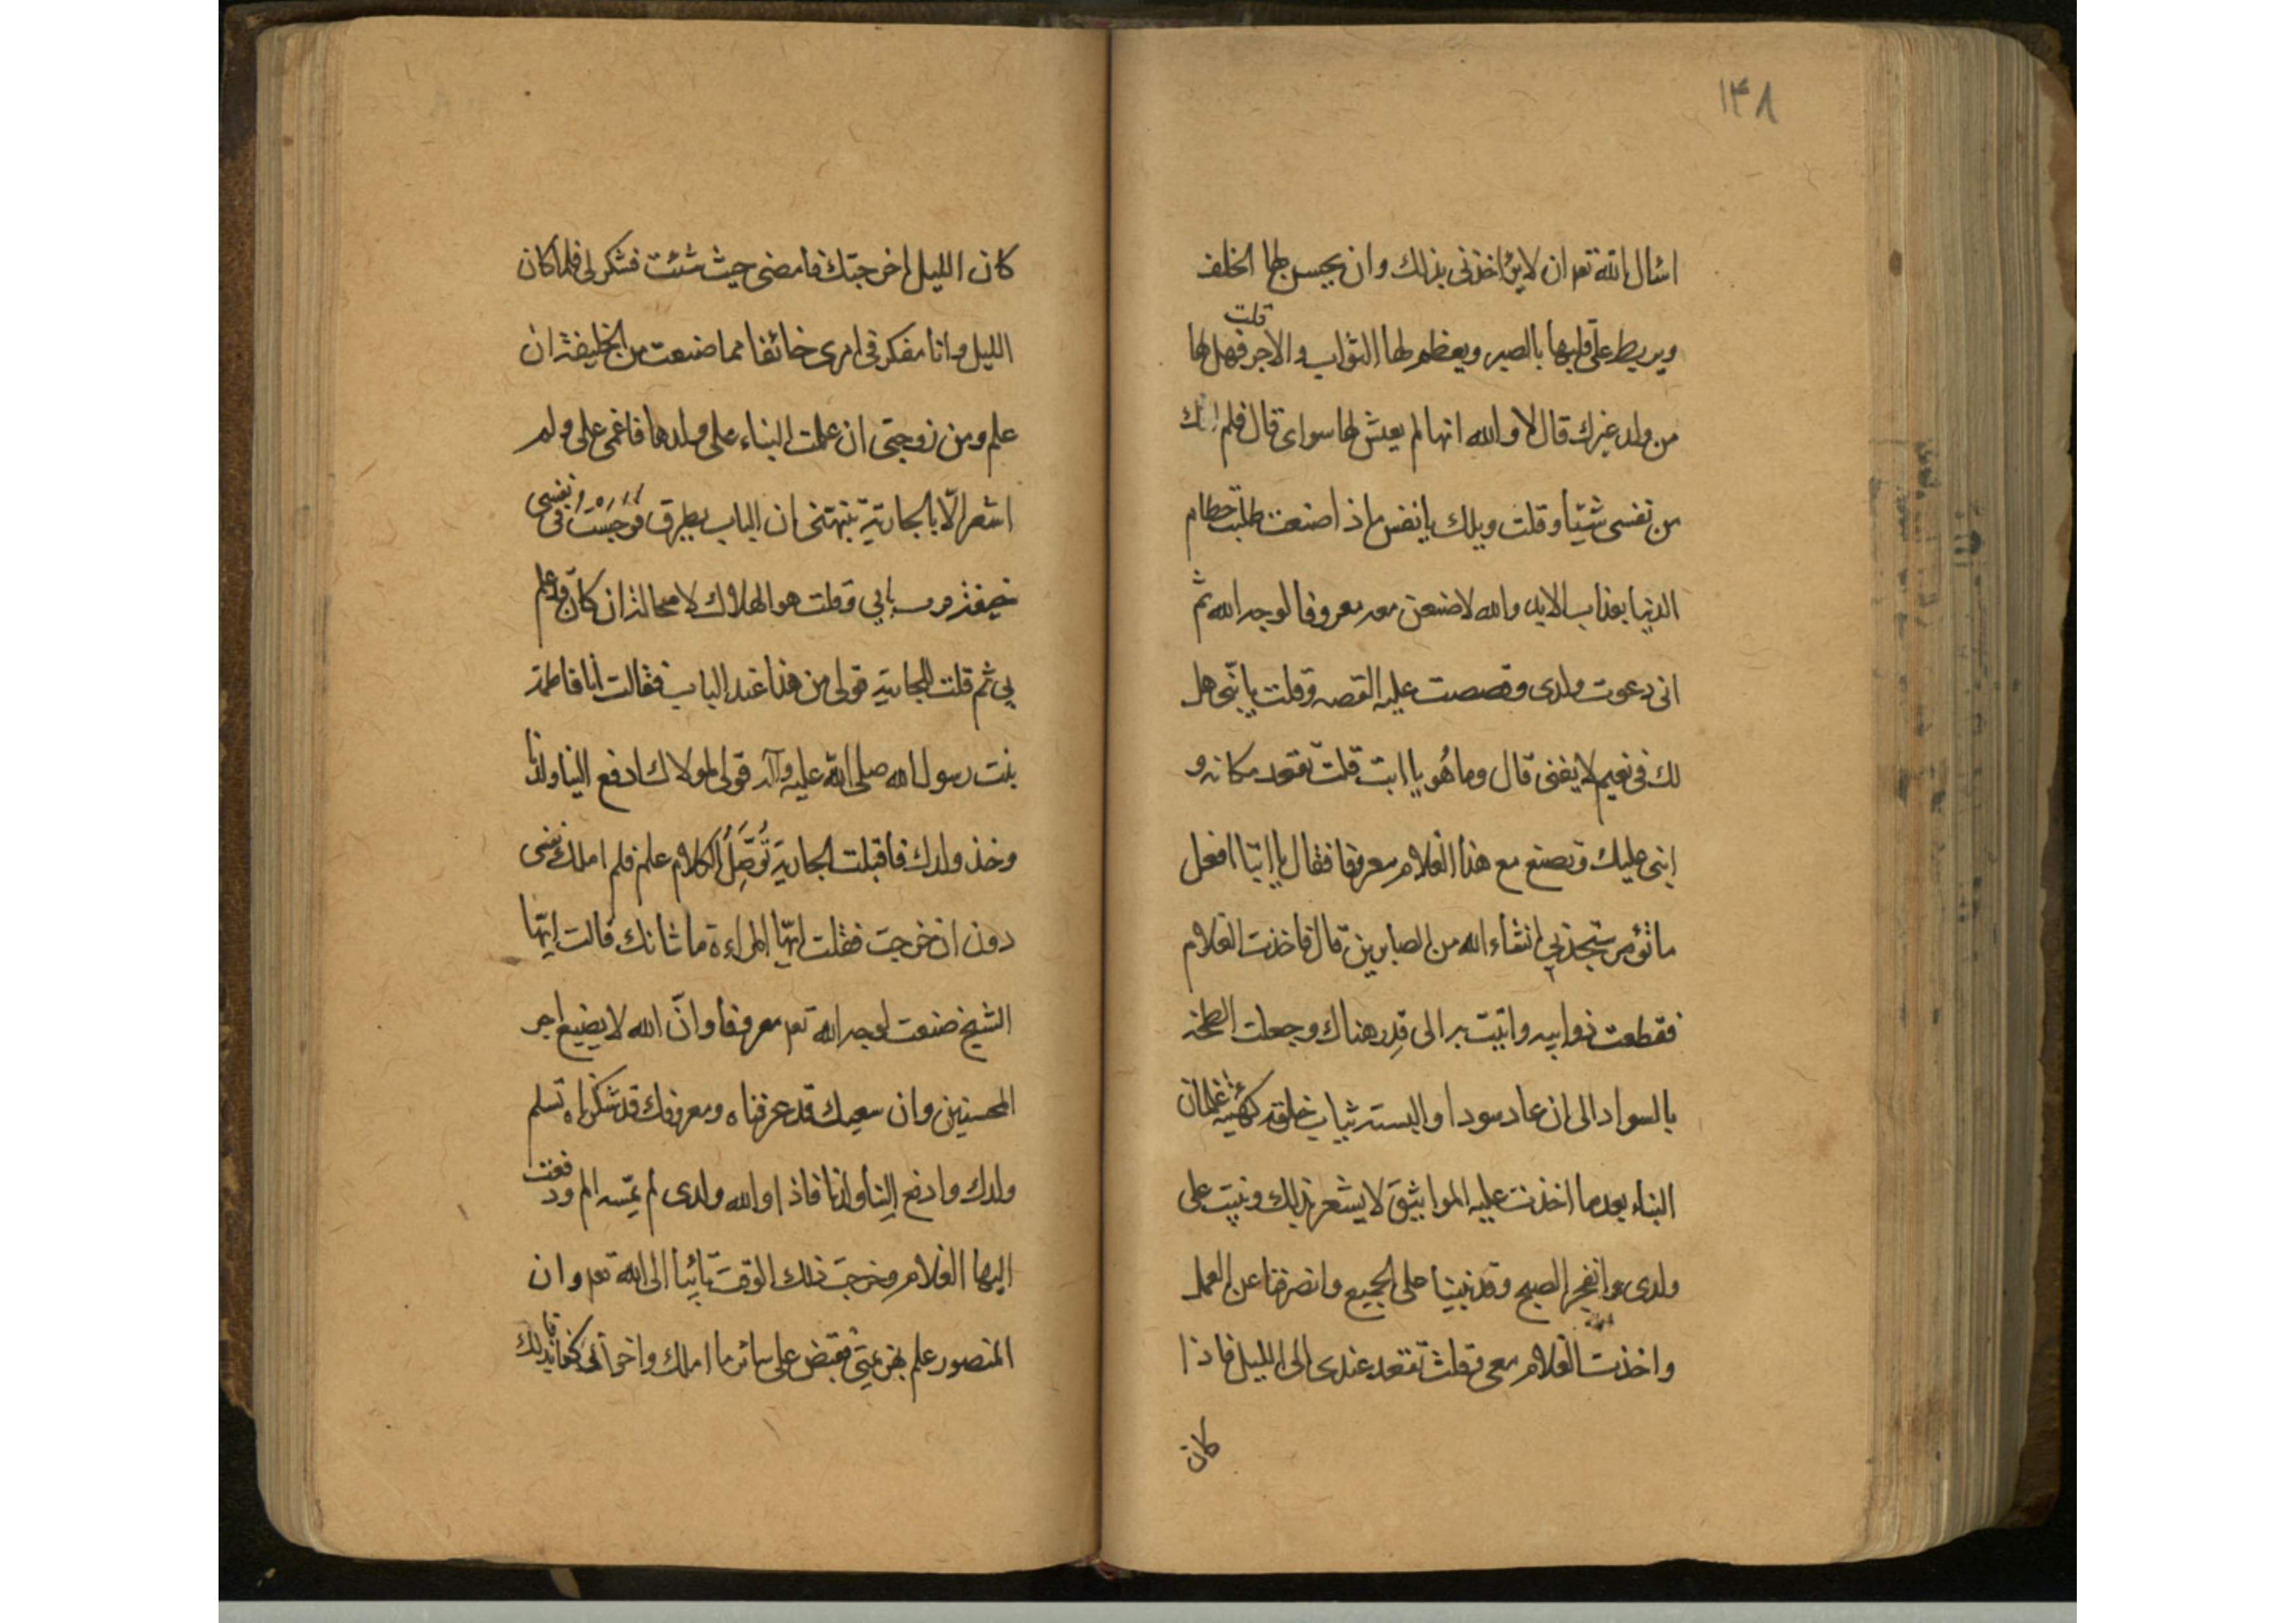 ۱۴۸
اسٔال الله تعه ان لا يؤاخذنى بذلك وان يحسن لها الخلف
ويربط على قلبها بالصبر ويعظم لها الثواب و الاجر قلت فهل لها
من ولد غيرك قال لا والله انها لم يعش لها سواى قال فلم املك
من نفسى شيئا وقلت ويلك يا نفس ماذا صنعت طلبت حطام
الدنيا بعذاب الابد والله لاصنعن معه معروفا لوجه الله ثم
انى دعوت ولدى وقصصت عليه القصه وقلت يا بنّى هل
لك فى نعيم لا يفنى قال وما هُو يا ابت قلت تقعد مكانه و
ابنى عليك وتصنع مع هذا الغلام معروفا فقال يا ابتا افعل
ما تؤمر ستجدنى انشاء الله من الصابرين قال فاخذت الغلام
فقطعت ذوابيه واتيت به الى قِدر هناك وجعلت الطخه
بالسواد الى ان عاد سودا والبسته ثياب خلقه كهيئة غلمان
البناء بعد ما اخذت عليه المواثيق لا يشعر بذلك وبنيت على
ولدى وانفجر الصبح وقد بنينا على الجميع وانصرفنا عن العمل
واخذت الغلام معى وقلت تقعد عندى الى الليل فاذا
كان
كان الليل اخرجتك فامضى حيث شئت فشكر لى فلما كان
الليل وانا مفكر فى امرى خائفا مما صنعت من الخليفة ان
علم ومن زوجتى ان علمت البناء على ولدها فاغمى على ولم
اشعر الّا بالجارية تنبهتنى ان الباب يطرق فوجست فى نفسى
خيفة وقلت هو الهلاك لا محالة ان كان قد علم
بى ثم قلت للجارية قولى من هذا عند الباب فقالت انا فاطمة
بنت رسول الله صلى الله عليه وآله قولى لمولاك ادفع الينا ولدنا
وخذ ولدك فاقبلت الجارية تُوَصِّلُ الكلام علم فلم املك نفسى
دون ان خرجت فقلت ايتّها المراءة ما شانك قالت ايّها
الشيخ صنعت لوجه الله تعه معروفا وانّ الله لا يضيع اجر
المحسنين وان سعيك قد عرفناه ومعروفك قد شكرناه تسلم
ولدك وادفع الينا ولدنا فاذا والله ولدى لم يمّسه الم ودفعت
اليها الغلام وخرجت ذلك الوقت تائبا الى الله تعه وان
المنصور علم بهزيمتى فقبض على سائر ما املك